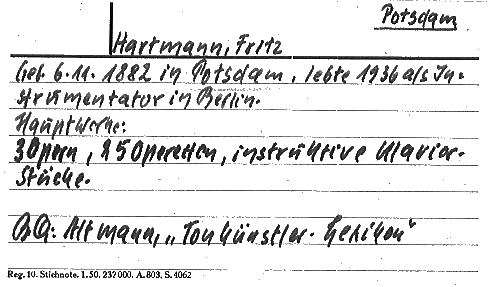 Potsdam
Hartmann, Fritz
Geb. 6.11. 1882 in Potsdam, lebte 1936 als In-
strumentator in Berlin.
Hauptwerke:
3 Opern, 25 Operetten, instruktive Klavier-
Stücke.
BQ: Altmann, „Tonkünstler-Lexikon"
Reg. 10. Stichnote. 1. 50. 232000. A. 803. S. 4062